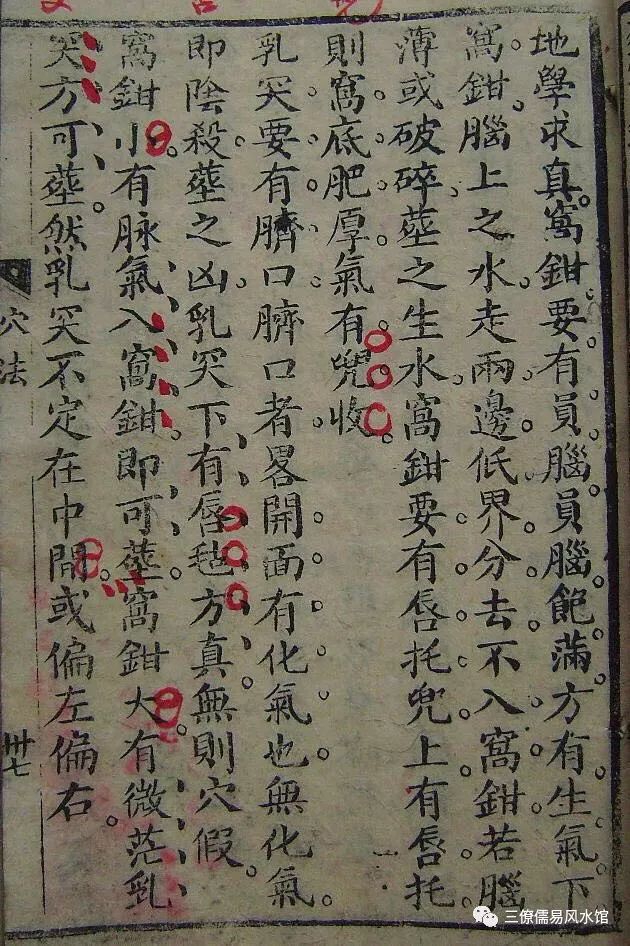 地學求真窩鉗要有員腦員腦飽滿方有生氣下
窩鉗腦上之水走兩邊低界分去不入窩鉗若腦
薄或破碎塟之生水窩鉗要有唇托兜上有唇托
則窩底肥厚氣有兜收
乳突要有臍口臍口者畧開面有化氣也無化氣
即陰殺塟之凶乳突下有唇毡方真無則穴假
窩鉗小有脉氣入窩鉗即可塟窩鉗大有微茫乳
突方可塟然乳突不定在中間或偏左偏右
穴法
卅七
三僚儒易风水馆